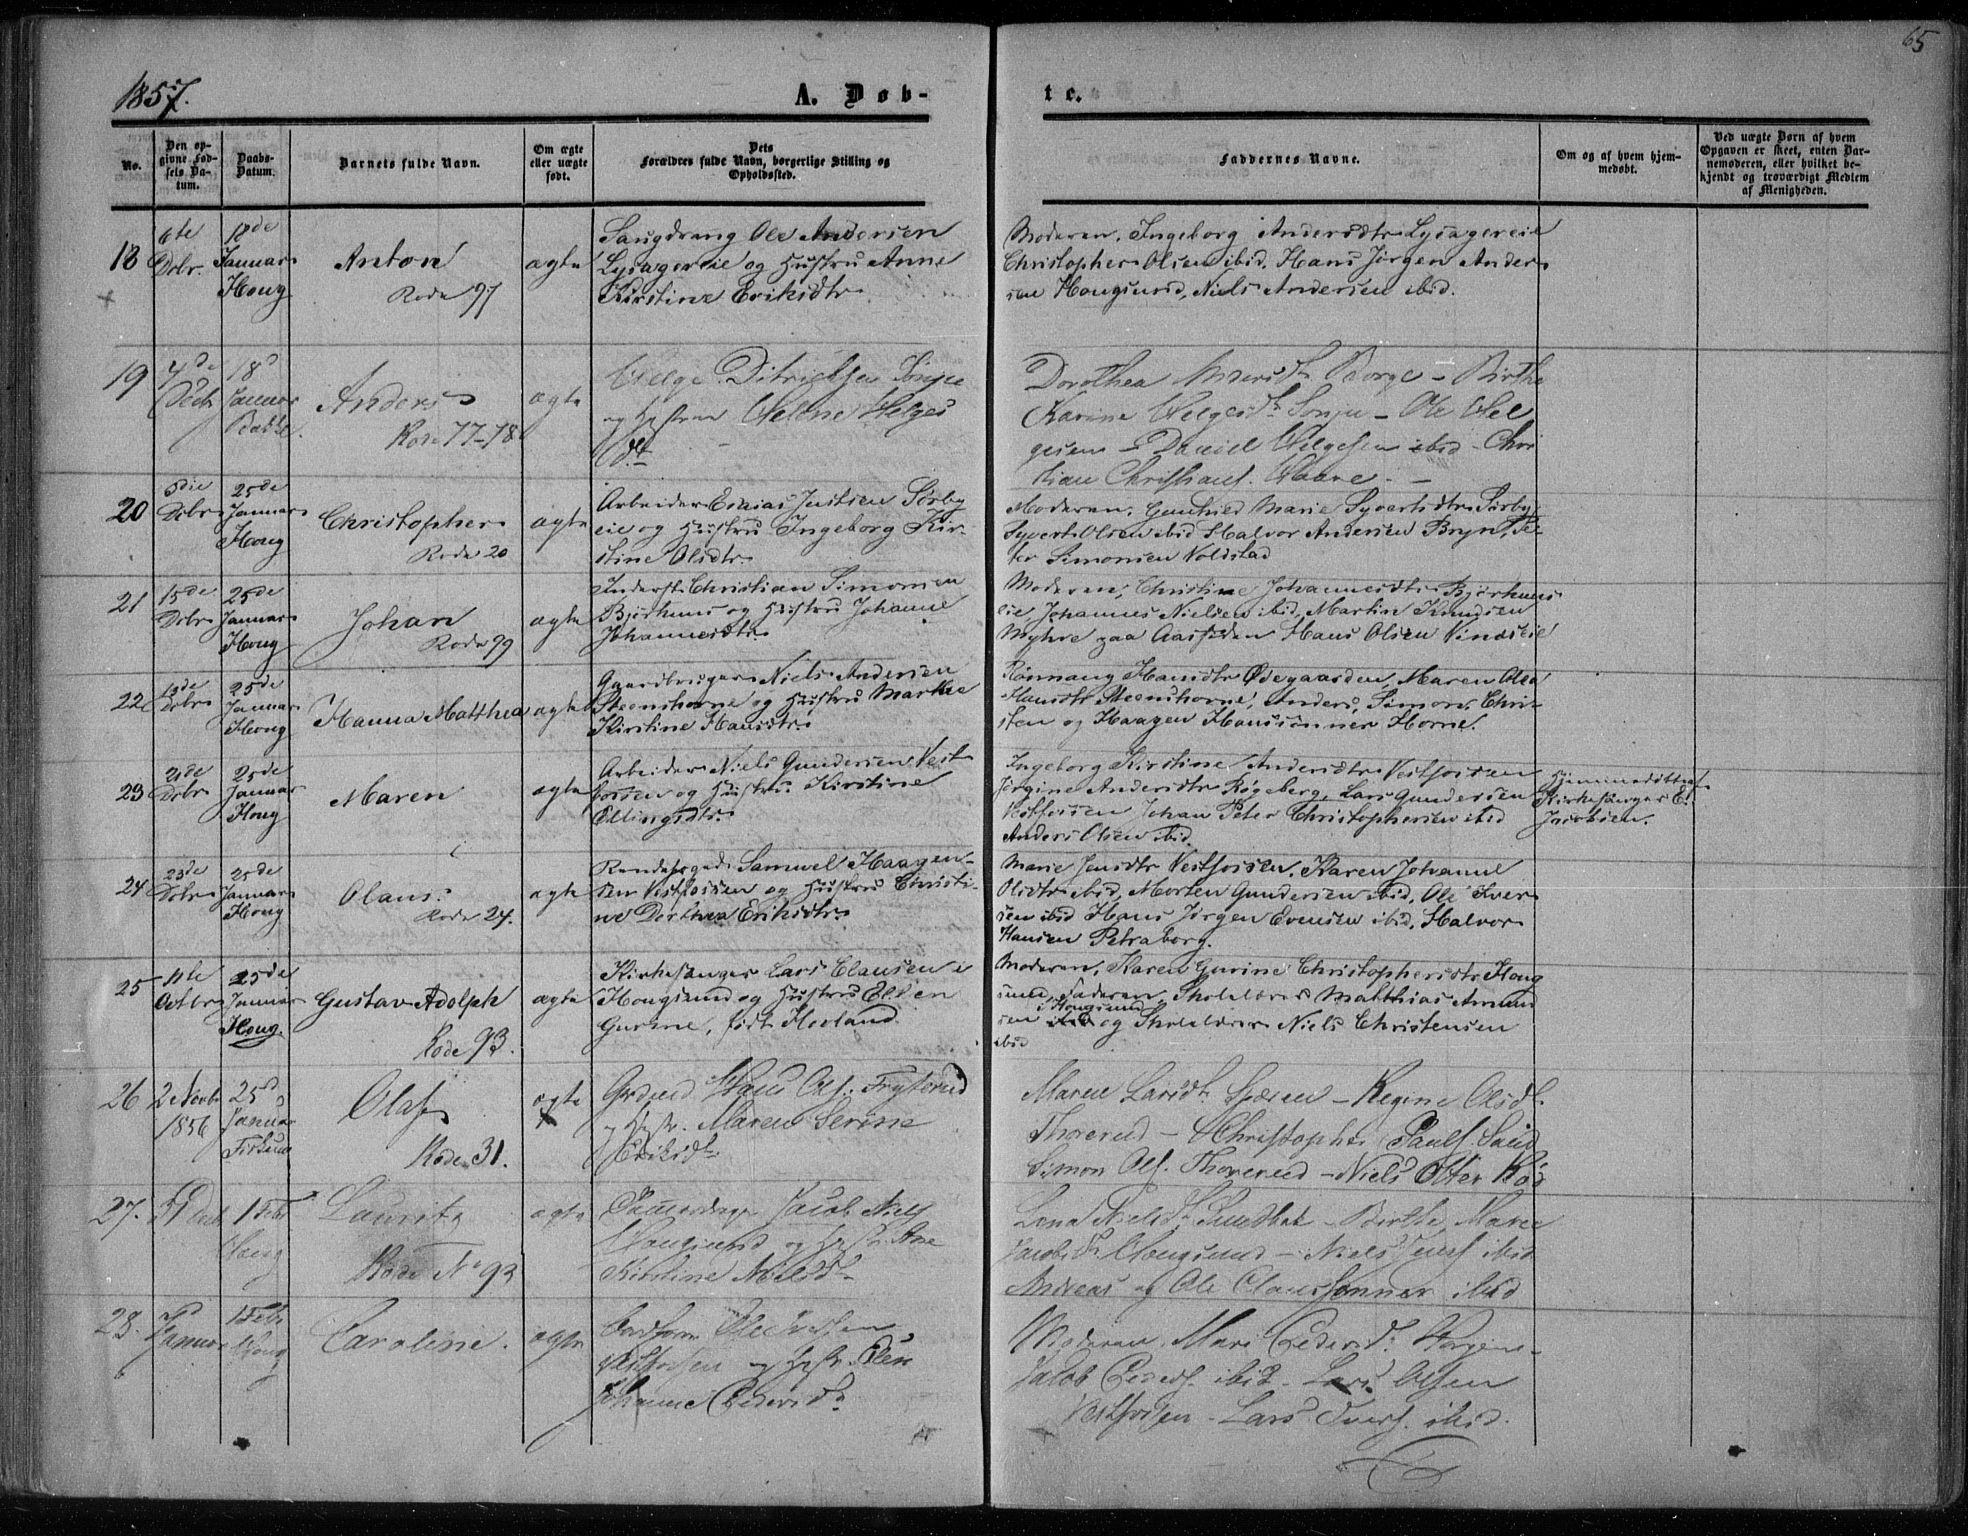 65
1857.
A. Døb-
te.
No.
Den op-
givne Fød-
sels Da-
tum.
Daabs-
Datum.
Barnets fulde Navn.
Om ægte
eller uægte
født.
Dets
Forældres fulde Navn, borgerlige Stilling og
Opholdssted.
Faddernes Navne.
Om og af hvem hjem-
medøbt.
Ved uægte Børn af hvem
Opgaven er skeet, enten Bar-
nemoderen, eller hvilket be-
kjendt og troværdigt Medlem
af Menigheden.
18
6te
Dcbr.
18de
Januar
Houg
Anton
Rode 97
ægte
Ole Andersen
Lysagereie og Hustru Anne
Kirstine Eriksdtr
Moderen, Ingeborg Andersdtr Lysagereie
Christopher Olsen ibid, Hans Jørgen Ander-
sen Hougsund, Niels Andersen ibid.
19
4de
Decb
18d
Januar
Bakke.
Anders
Rode 77-78
ægte
Helge Ditrichsen
og Hustru Helene Helges
dt
Dorothea Borge - Birthe
Karine Helgesdt - Ole Hel
gesen - Daniel Helgesen ibid - Chri
stian Christians.
20
5die
Dcbr
25de
Januar
Houg
Christopher
Rode 20
ægte
Arbeider Esaias Justsen Sørby
eie og Hustru Ingeborg Kir-
stine Olsdtr
Moderen, Gunhild Marie Syvertsdtr Sørby,
Syvert Olsen ibid Halvor Andersen Bryn, Pe-
ter Simonsen Voldstad
21
15de
Dcbr
25de
Januar
Houg
Johan
Rode 99
ægte
Inderst Christian Simonsen
Bjørhuus og Hustru Johanne
Johannesdtr
Moderen, Christine Johannesdtr Bjørhuus
eie, Johannes Nielsen ibid, Martin Knudsen
Myhre paa Aassiden Hans Olsen
22
13de
Dcbr
25de
Januar
Houg
Hanna Matthea
ægte
Gaardbruger Niels Andersen
Steenshorne og Hustru Marthe
Kirstine Hansdtr
Rønnaug Hansdtr Ødegaarden, Maren Olea
Hansdtr Steenshorne, Anders, Simon, Chri-
sten og Haagen Hanssønner Horne.
23
21de
Dcbr
25de
Januar
Houg
Maren
ægte
Arbeider Niels Gundersen Vest
fossen og Hustru Kirstine
Ellingsdtr
Ingeborg Kirstine Andersdtr Vestfossen
Jørgine Andersdtr Røgeberg, Lars Gundersen
Vestfossen Johan Peter Christophersen ibid
Anders Olsen ibid.
Hjemmedøbt af
Kirkesanger E.
Jacobsen.
24
23de
Dcbr
25de
Januar
Houg
Olaus
Rode 24.
ægte
Samuel Haagen-
sen Vestfossen og Hustru Christi-
ne Dorthea Eriksdtr
Marie Jensdtr Vestfossen, Karen Johanne
Olsdtr ibid, Morten Gundersen ibid, Ole Iver-
sen ibid Hans Jørgen Evensen ibid, Halvor
Hansen Petraborg.
25
11te
Octbr
25de
Januar
Houg
Gustav Adolph
Rode 93.
ægte
Kirkesanger Lars Clausen i
Hougsund og Hustru Ellen
Gurine, født Hovland
Moderen, Karen Gurine Christophersdtr Houg
sund, Faderen, Skolelærer Matthias Amund
sen i Hougsund og Skolelærer Niels Christensen
ibid
26
2 Novbr
1856
25d
Januar
Fiskum
Olaf
Rode 31.
ægte
Hans Ols.
og Hustr. Maren Serine
Eriksdt
Maren Larsdt - Regine Olsdt
Thorerud - Christopher Pauls.
Simon Ols. Thorerud - Niels
27.
1 Febr
Houg
Lauritz
Rode No 93
ægte
Jacob Niels
Hougsund og Hustr. Ane
Kirstine Nielsdt
Lena Nielsdt - Birthe Marie
Jacobsdt Hougsund - Niels Jens. ibid
Andreas og Ole Claussønner ibid
28.
Januar
1 Febr
Houg
Caroline.
ægte
Ole Iversen
Vestfossen og Hustr. Ellen
Johanne Pedersdt
Moderen, Mari Pedersdt
Jacob Peders. ibid - Lars Olsen
Vestfossen - Lars Ivers. ibid.